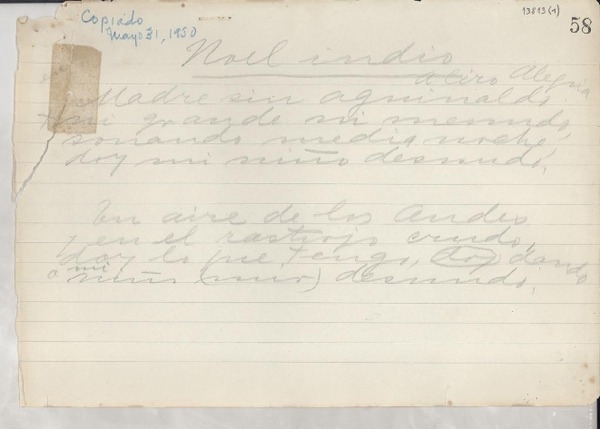 Copiado
Mayo 31, 1950
13813(1)
58
Noel indio
a Ciro Alegría
Madre sin aguinaldo,
ni grande ni menudo,
sonando media noche
doy mi niño desnudo.
En aire de los Andes
y en el rastrojo crudo,
doy lo que tengo, doy dando
a mi niño (mío) desnudo.